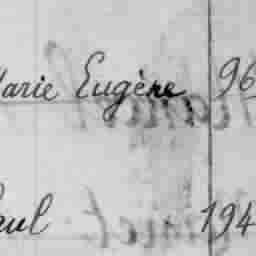 Marie Eugène 96
Paul 194